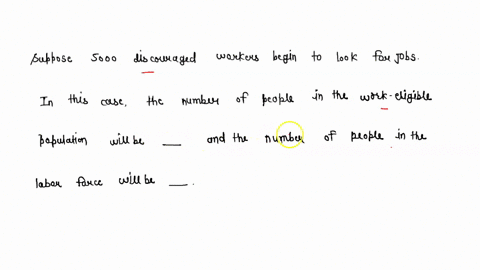 Suppose 5000 discouraged workers begin to look for jobs.
In this case, the number of people in the work-eligible
population will be __ and the number of people in the
labor force will be __.